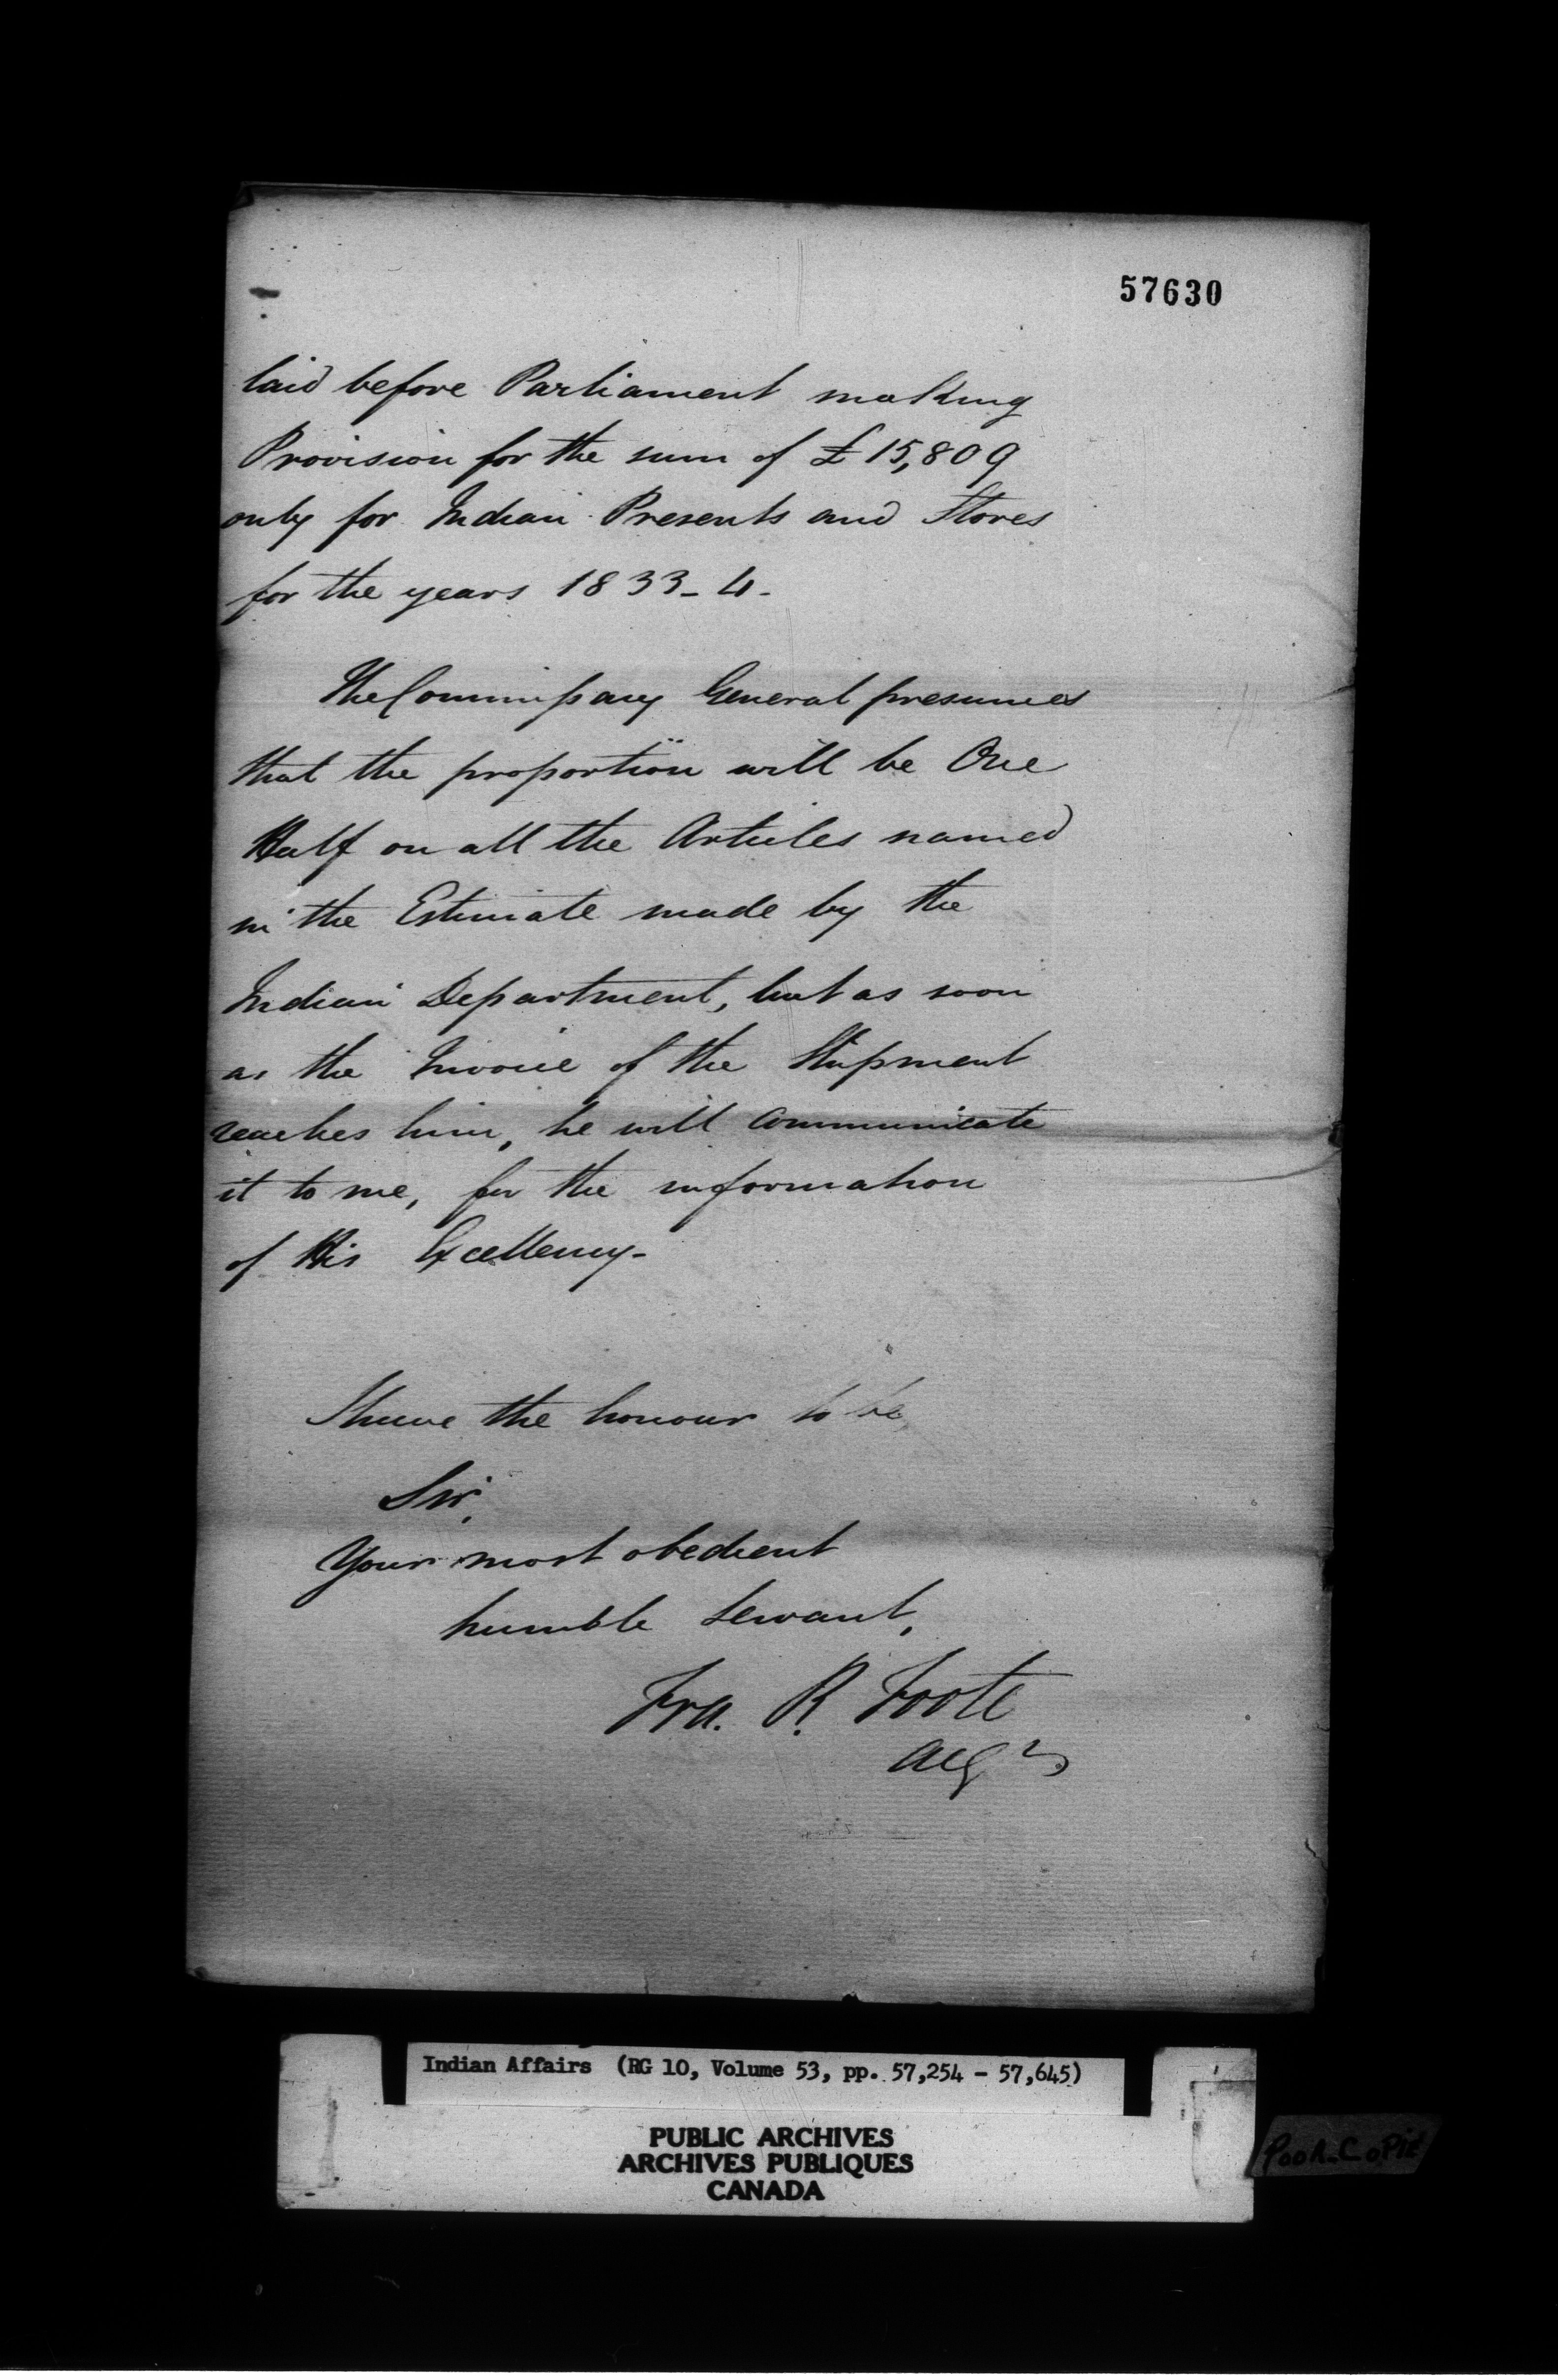 57630
laid before Parliament making
Provision for the sum of £15,809
only for Indian Presents and Stores
for the years 1833-4.
The Commissary General presumes
that the proportion will be One
Half on all the Articles named
in the Estimate made by the
Indian Department, but as soon
as the Invoice of the Shipment
reaches him, he will communicate
it to me, for the information
of His Excellency-
I have the honour to be,
Sir,
Your most obedient
humble Servant,
Fra. R. Foote
Indian Affairs (RG 10, Volume 53, pp. 57,254 - 57,645)
PUBLIC ARCHIVES
ARCHIVES PUBLIQUES
CANADA
Poor Copie